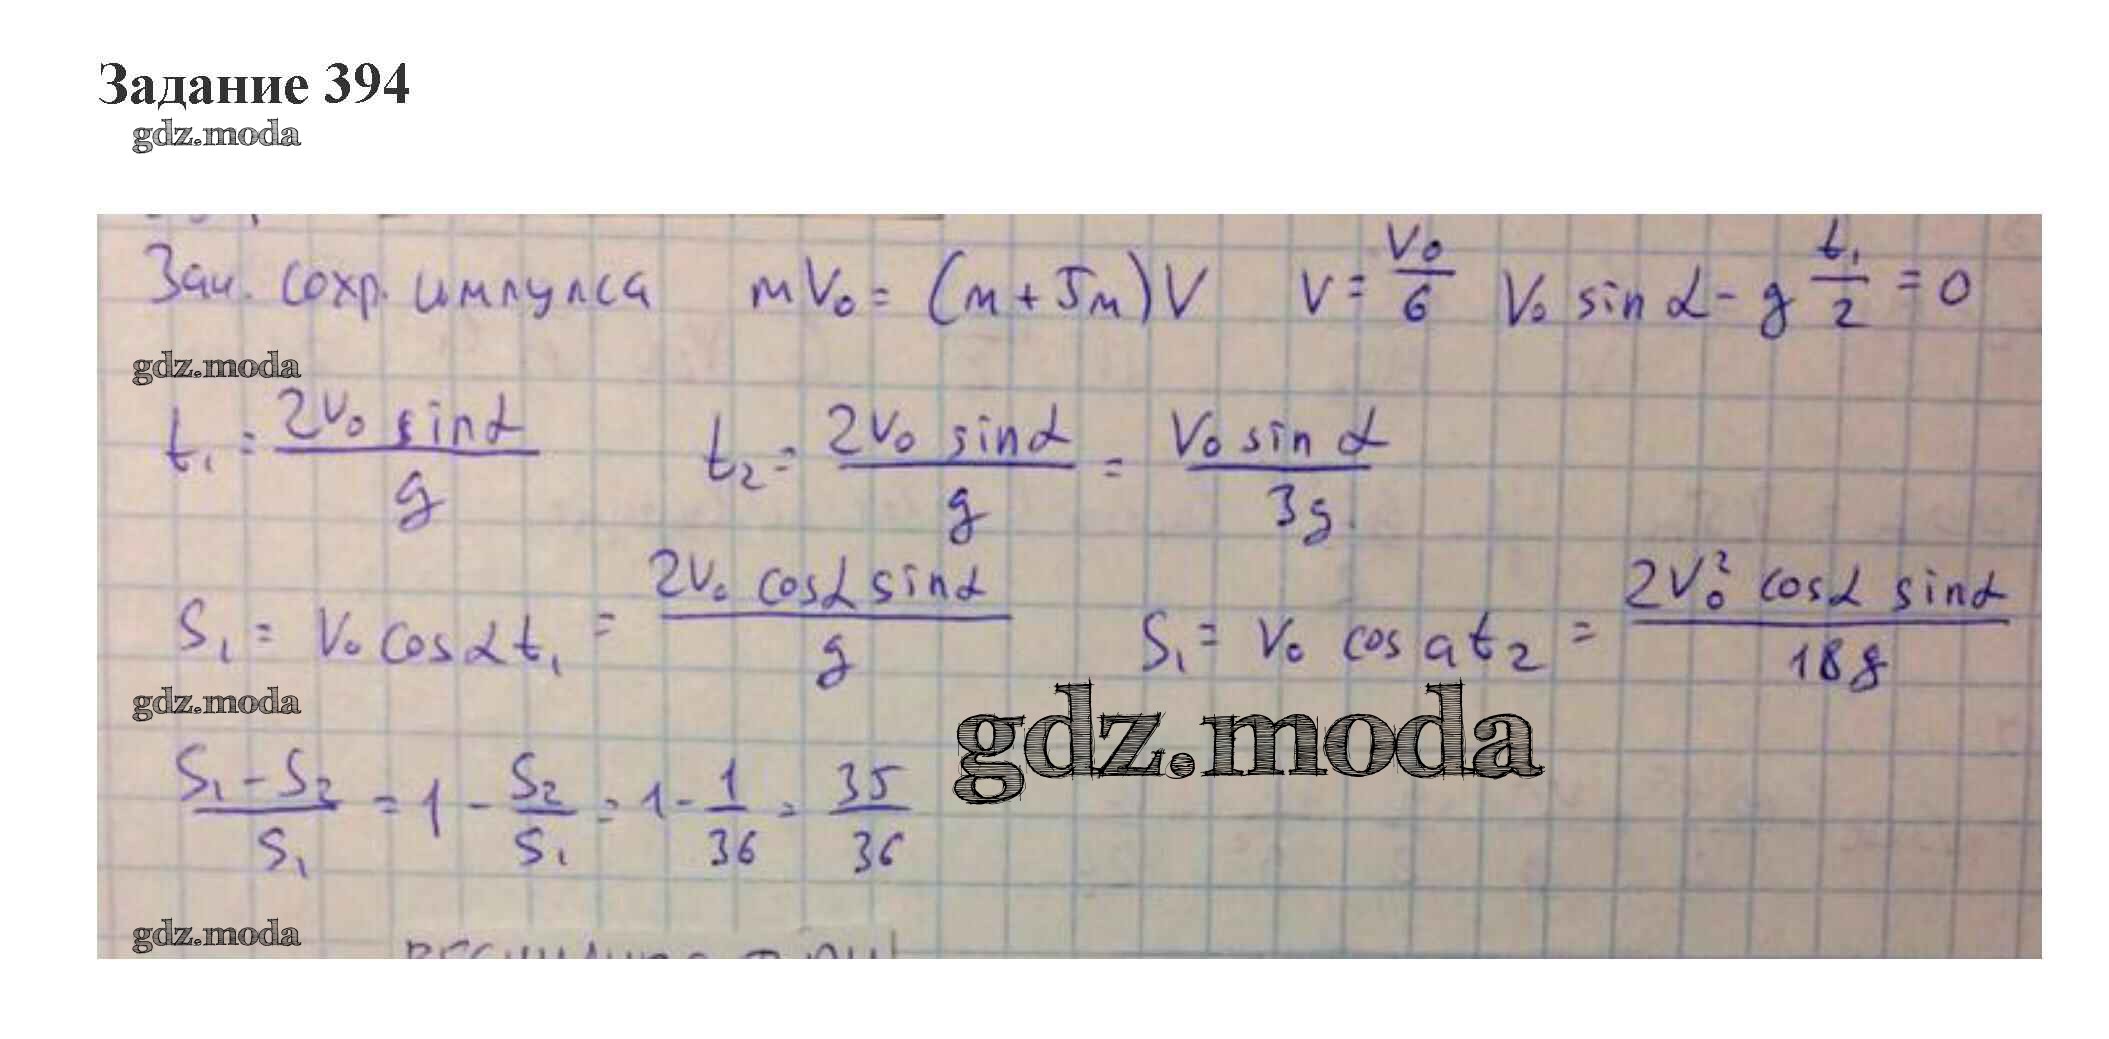 Задание 394
gdz.moda
Зак. сохр. импулса mV₀ = (m + 5m)V V = V₀/6 V₀ sin α - g t₁/2 = 0
gdz.moda
t₁ = 2V₀ sin α / g t₂ = 2V₀ sin α / g = V₀ sin α / 3g
S₁ = V₀ cos α t₁ = 2V₀ cos α sin α / g S₁ = V₀ cos a t₂ = 2V₀² cos α sin α / 18g
gdz.moda
gdz.moda
S₁ - S₂ / S₁ = 1 - S₂/S₁ = 1 - 1/36 = 35/36
gdz.moda